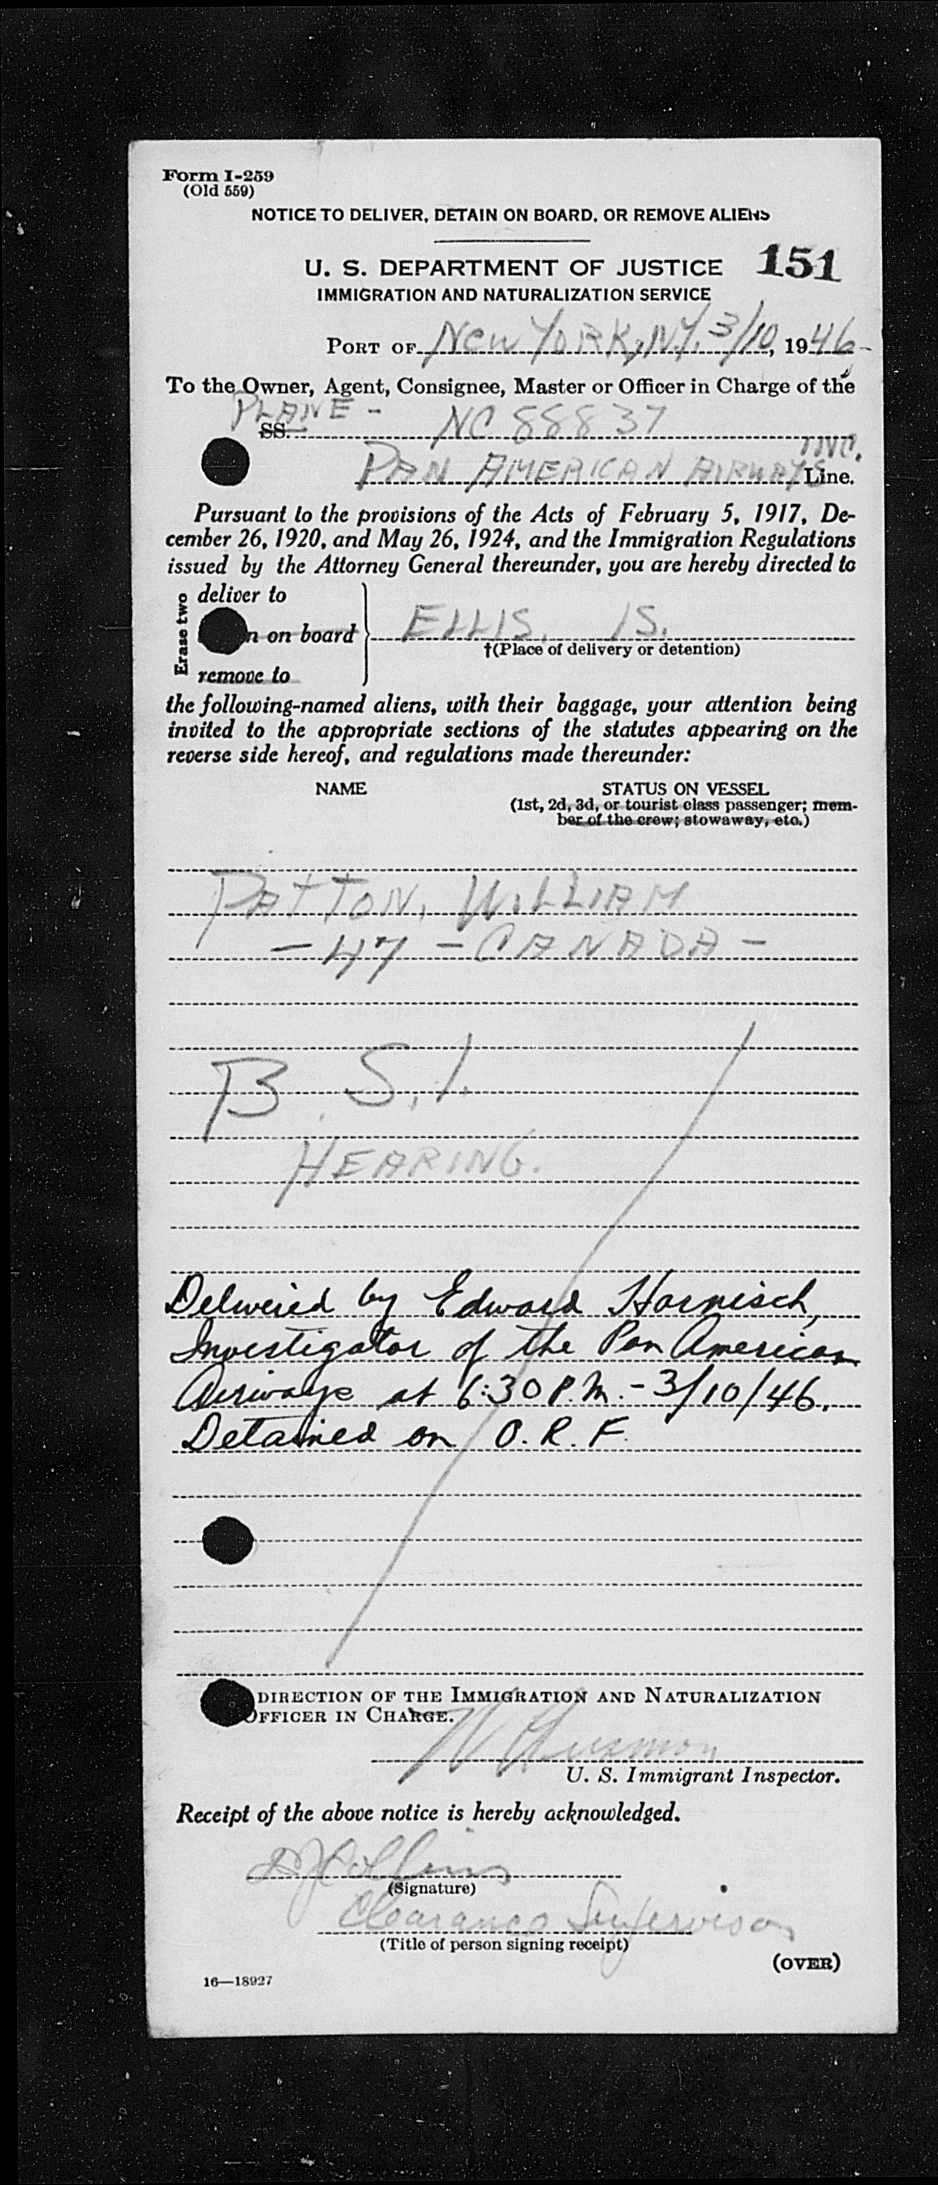 Form I-259
(Old 559)
NOTICE TO DELIVER, DETAIN ON BOARD, OR REMOVE ALIENS
U. S. DEPARTMENT OF JUSTICE 151
IMMIGRATION AND NATURALIZATION SERVICE
PORT OF NEW YORK, N.Y. 3/10, 1946
To the Owner, Agent, Consignee, Master or Officer in Charge of the
PLANE - SS. NC 88837
PAN AMERICAN AIRWAYS INC. Line.
Pursuant to the provisions of the Acts of February 5, 1917, De-
cember 26, 1920, and May 26, 1924, and the Immigration Regulations
issued by the Attorney General thereunder, you are hereby directed to
Erase two
deliver to
n on board ELLIS. IS.
†(Place of delivery or detention)
remove to
the following-named aliens, with their baggage, your attention being
invited to the appropriate sections of the statutes appearing on the
reverse side hereof, and regulations made thereunder:
NAME STATUS ON VESSEL
(1st, 2d, 3d, or tourist class passenger; mem-
ber of the crew; stowaway, etc.)
PATTON, WILLIAM
- 47 - CANADA -
B. S. I.
HEARING.
Delivered by Edward Harnisch,
Investigator of the Pan American
Airways at 6:30 P.M. - 3/10/46.
Detained on O. R. F.
DIRECTION OF THE IMMIGRATION AND NATURALIZATION
OFFICER IN CHARGE.
U. S. Immigrant Inspector.
Receipt of the above notice is hereby acknowledged.
Collins
(Signature)
Clearance Supervisor
(Title of person signing receipt)
(OVER)
16—18927